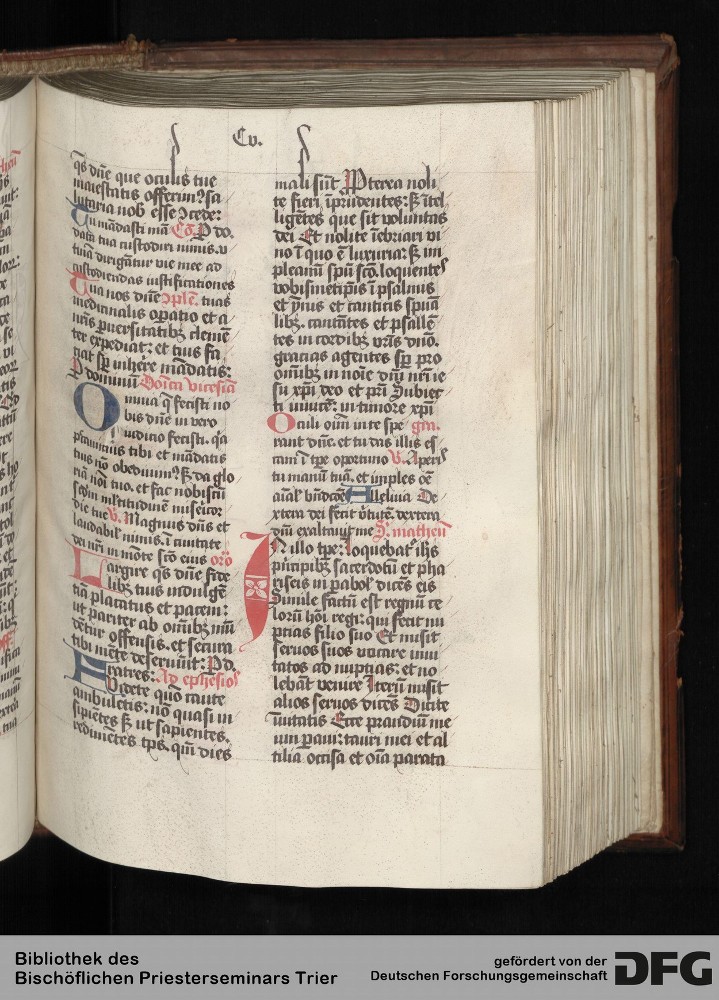 Cv.
q̄s dn̄e que oculis tue
maiestatis offerim⁹ sa
lutaria nob esse ꝯcede:
Tu mādasti mā Cō P do.
data tua custodiri nimis. v
tinā dirigātur vie mee ad
custodiendas iustificationes
Tua nos dn̄e ꝯple. tuas
medicinalis oꝑatio et a
nr̄is ꝑuersitatibꝫ clemē
ter expediat: et tuis fa
ciat sp̄ inhēre mādatis:
P dominū Domīca vicesia
Omnia q̄ fecisti no
bis dn̄e in vero
iudicio fecisti. q̄a
peccauim⁹ tibi et mādatis
tuis nō obediuim⁹ ꝫ da glo
riā nōi tuo. et fac nobiscū
scd̄m ml̄titudinē misericor
die tue v. Magnus dn̄s et
laudabil' nimis. ī ciuitate
dei nr̄i in mōte scō eius oro
Largire q̄s dn̄e fide
libꝫ tuis indulgē
tiā placatus et pacem:
ut pariter ab om̄ibꝫ mū
dētur offensis. et secura
tibi mēte deseruiāt: P d.
Fratres: Ad ephesios
Videte quō caute
ambuletis: nō quasi in
sipiētes ꝫ ut sapientes.
redimētes tp̄s. qm̄ dies
mali sūt Ppterea noli
te fieri īprudentes: ꝫ ītel
ligētes que sit voluntas
dei Et nolite īebriari vi
no ī quo ē luxuria: ꝫ im
pleamī spū scō. loquentes
vobismetip̄is ī psalmis
et ymis et canticis spūa
libꝫ. cantātes et psallē
tes in cordibꝫ vr̄is dn̄o.
gracias agentes sp̄ pro
om̄ibꝫ in noīe dn̄i nr̄i ie
su xp̄i deo et pr̄i Subiec
ti inuicē: in timore xp̄i
Oculi oīm in te spe gra.
rant dn̄e. et tu das illis es
cam ī tp̄e oportuno V. Aperis
tu manū tuā. et imples oē
aīal' bn̄dicōē Alleluia De
xtera dei fecit v̄tutē. dextera
dn̄i exaltauit me S. matheū
In illo tp̄e: loquebat' ih̄s
pricipibꝫ sacerdotū et pha
riseis in ꝑabol' dicēs eis
Simile factū est regnū ce
lorū hōi regi: qui fecit nu
ptias filio suo Et misit
seruos suos vocare inui
tatos ad nuptias: et no
lebāt venire Iterū misit
alios seruos dicēs Dicite
īuitatis Ecce prandiū me
um paraui: tauri mei et al
tilia occisa et oīa parata
Bibliothek des
Bischöflichen Priesterseminars Trier
gefördert von der
Deutschen Forschungsgemeinschaft
DFG